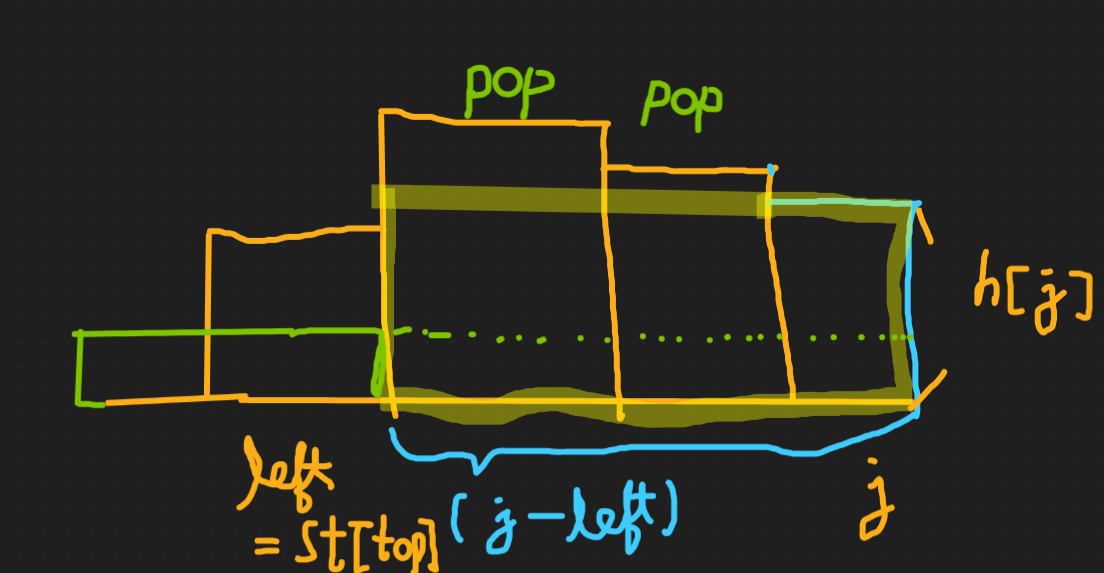 pop
pop
h[j]
left
= st[top]
(j-left)
j